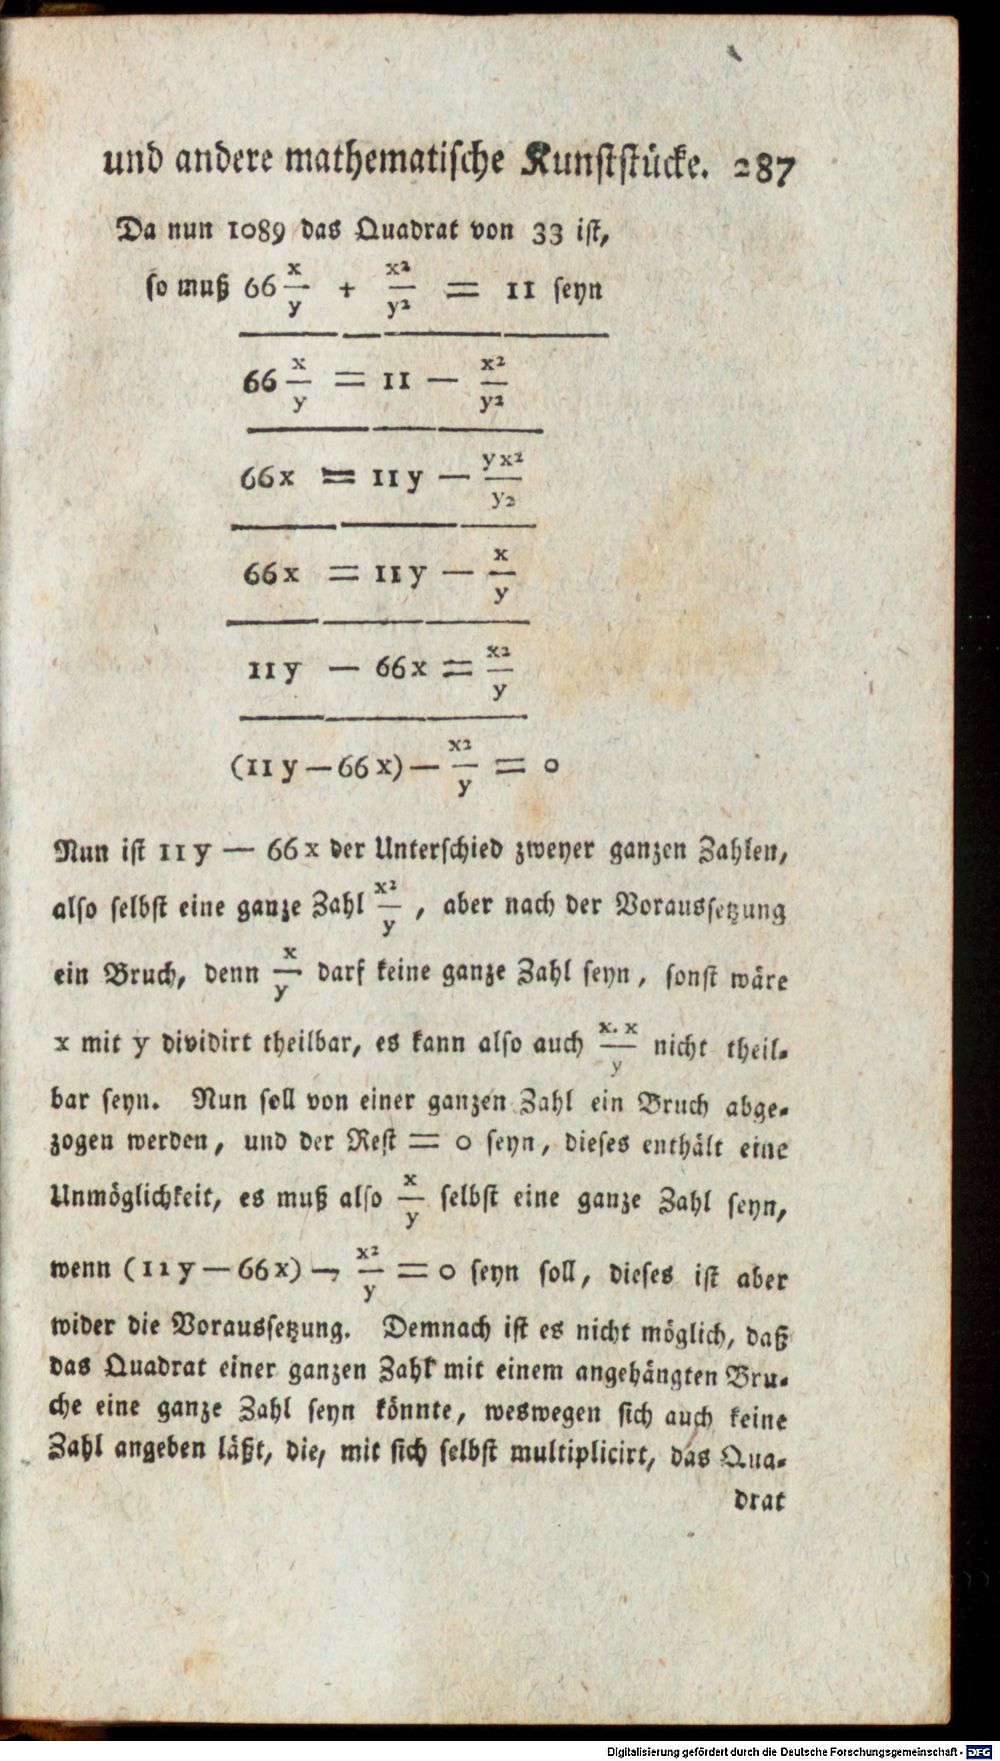 und andere mathematische Kunststücke. 287
Da nun 1089 das Quadrat von 33 ist,
so muß 66 x/y + x²/y² = 11 seyn
66 x/y = 11 — x²/y²
66x = 11y — yx²/y2
66x = 11y — x/y
11y — 66x = x2/y
(11y — 66x) — x²/y = 0
Nun ist 11y — 66x der Unterschied zweyer ganzen Zahlen,
also selbst eine ganze Zahl x²/y , aber nach der Voraussetzung
ein Bruch, denn x/y darf keine ganze Zahl seyn, sonst wäre
x mit y dividirt theilbar, es kann also auch x.x/y nicht theil-
bar seyn. Nun soll von einer ganzen Zahl ein Bruch abge-
zogen werden, und der Rest = 0 seyn, dieses enthält eine
Unmöglichkeit, es muß also x/y selbst eine ganze Zahl seyn,
wenn (11y — 66x) — x²/y = 0 seyn soll, dieses ist aber
wider die Voraussetzung. Demnach ist es nicht möglich, daß
das Quadrat einer ganzen Zahl mit einem angehängten Bru-
che eine ganze Zahl seyn könnte, weswegen sich auch keine
Zahl angeben läßt, die, mit sich selbst multiplicirt, das Qua-
drat
Digitalisierung gefördert durch die Deutsche Forschungsgemeinschaft - DFG